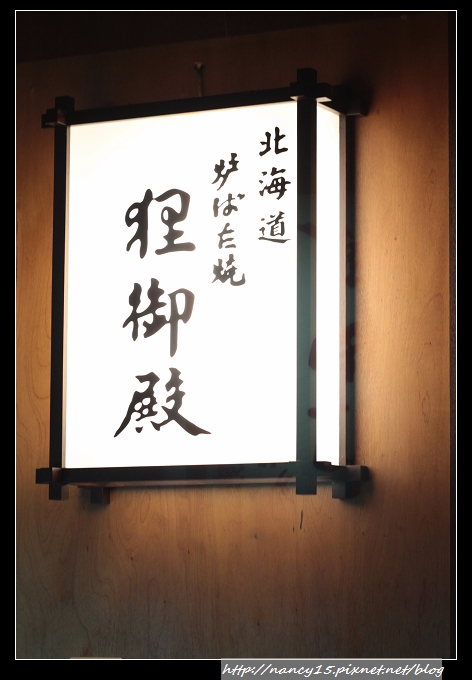 北海道
炉ばた焼
狸御殿
http://nancy15.pixnet.net/blog